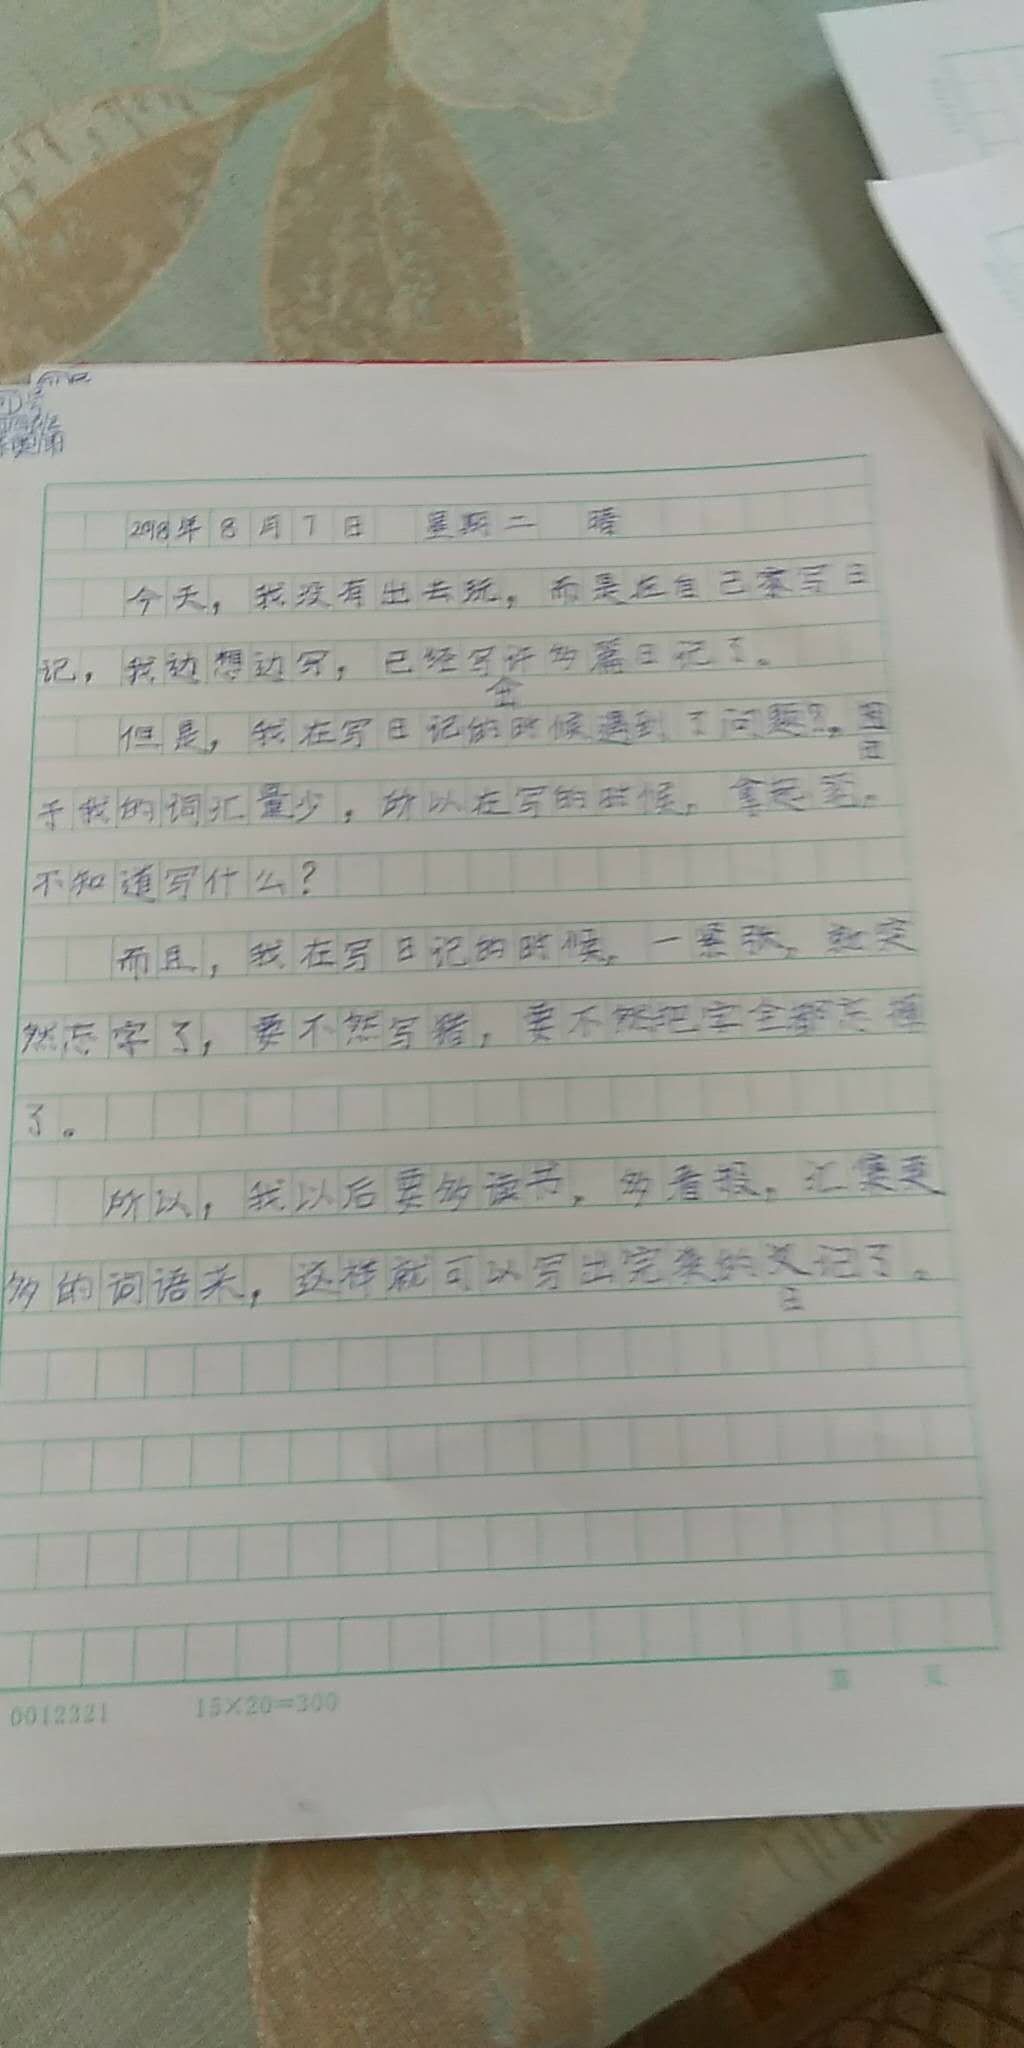 2018年8月7日 星期二 晴
今天，我没有出去玩，而是在自己家写日
记，我边想边写，已经写许多篇日记了。
但是，我在写日记的时候遇到了问题？，因
会
于我的词汇量少，所以在写的时候，拿起笔，
不知道写什么？
而且，我在写日记的时候，一紧张，就突
然忘字了，要不然写错，要不然把字全都忘掉
了。
所以，我以后要多读书，多看报，汇集更
多的词语来，这样就可以写出完美的日记了。
0012321 15×20=300 第 页